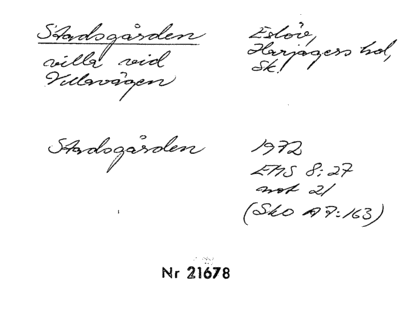 Stadsgården
villa vid
Villavägen
Eslöv,
Harjagers hd,
Sk.
Stadsgården
1972
EMS 8:27
not 21
(Sko A7:163)
Nr 21678